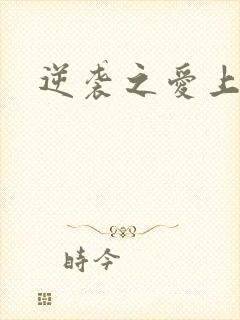 逆袭之愛上
時今